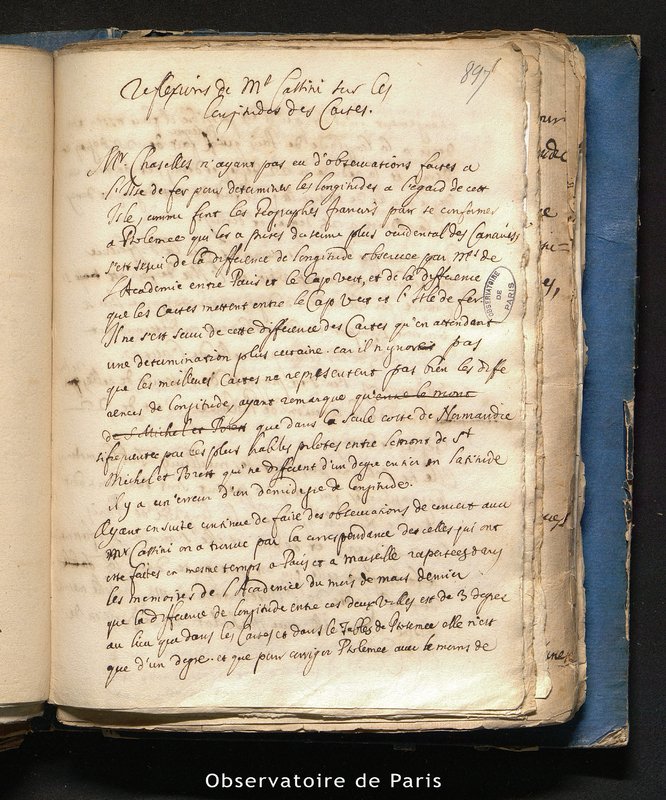 897
reflexions de Mr Cassini sur les
longitudes des Cartes.
Mr. Chaselles n'ayant pas eu d'observations faites a
l'Isle de fer pour determiner les longitudes a l'egard de cette
Isle, comme font les Geographes francois pour se conformer
a Ptolemee qui les a prises du terme plus occidental des Canaries,
s'est servi de la difference de longitude observee par Mrs de
L'Academie entre Paris et le Cap Vert, et de la difference
que les Cartes mettent entre le Cap Vert et l'Isle de fer.
Il ne s'est servi de cette difference des Cartes qu'en attendant
une determination plus certaine. car il n'ignoroit pas
que les meilleures Cartes ne representent pas bien les diffe
rences de longitude, ayant remarqué qu'entre le mont
de St Michel et Brest que dans la seule coste de Normandie
si frequentee par les plus habiles pilotes entre le mont de St
Michel et Brest qui ne different d'un degre entier en latitude
il y a un'erreur d'un demi degre de longitude.
Ayant en suite continué de faire des observations de concert avec
Mr Cassini on a trouvé par la correspondance de celles qui ont
esté faites en mesme temps a Paris et a Marseille raportees dans
les memoires de l'Academie du mois de mars dernier
que la difference de longitude entre ces deux Villes est de 3 degrez
au lieu que dans les Cartes et dans le Tables de Ptolemee elle n'est
que d'un degre. et que pour corriger Ptolemee avec le moins de
OBSERVATOIRE
DE
PARIS
Observatoire de Paris